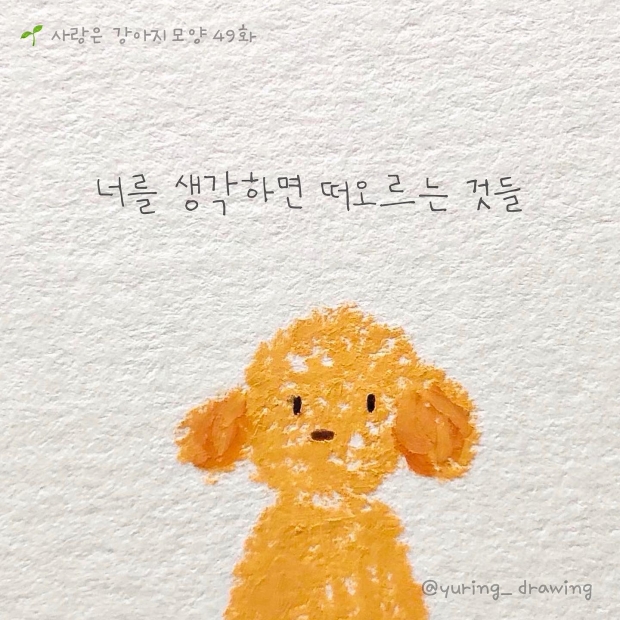 사랑은 강아지모양 49화
너를 생각하면 떠오르는 것들
@yuring_drawing